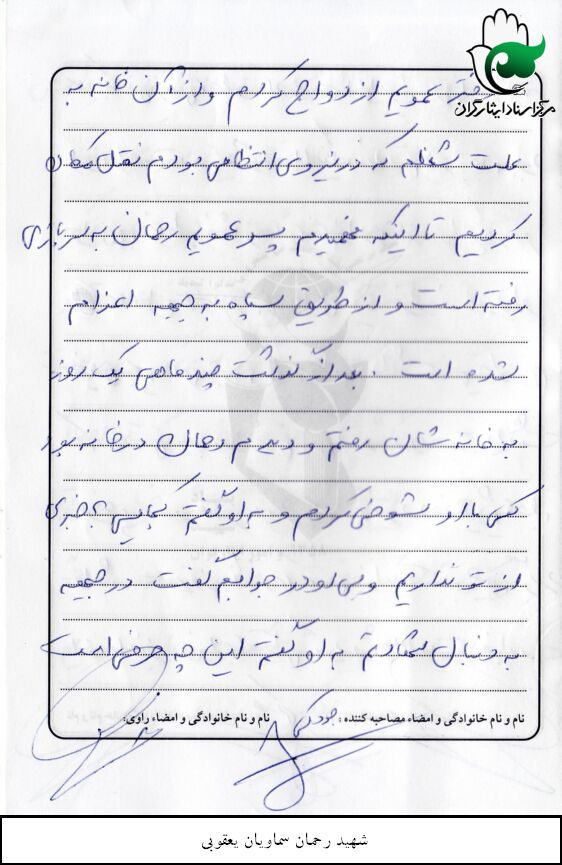 مرکز اسناد ایثارگران
دختر عمویم ازدواج کردم و از آن خانه به
علت شغلم که در نیروی انتظامی بودم نقل مکان
کردیم تا اینکه فهمیدم پسر عمویم رحمان به سربازی
رفته است و از طریق سپاه به جبهه اعزام
شده است . بعد از گذشت چند ماهی یک روز
به خانه شان رفتم و دیدم رحمان در خانه بود
کمی با او شوخی کردم و به او گفتم کجایی خبری
از تو نداریم ولی او در جوابم گفت در جبهه
به دنبال شهادتم به او گفتم این چه حرفی است
نام و نام خانوادگی و امضاء مصاحبه کننده : نام و نام خانوادگی و امضاء راوی:
شهید رحمان سماویان یعقوبی